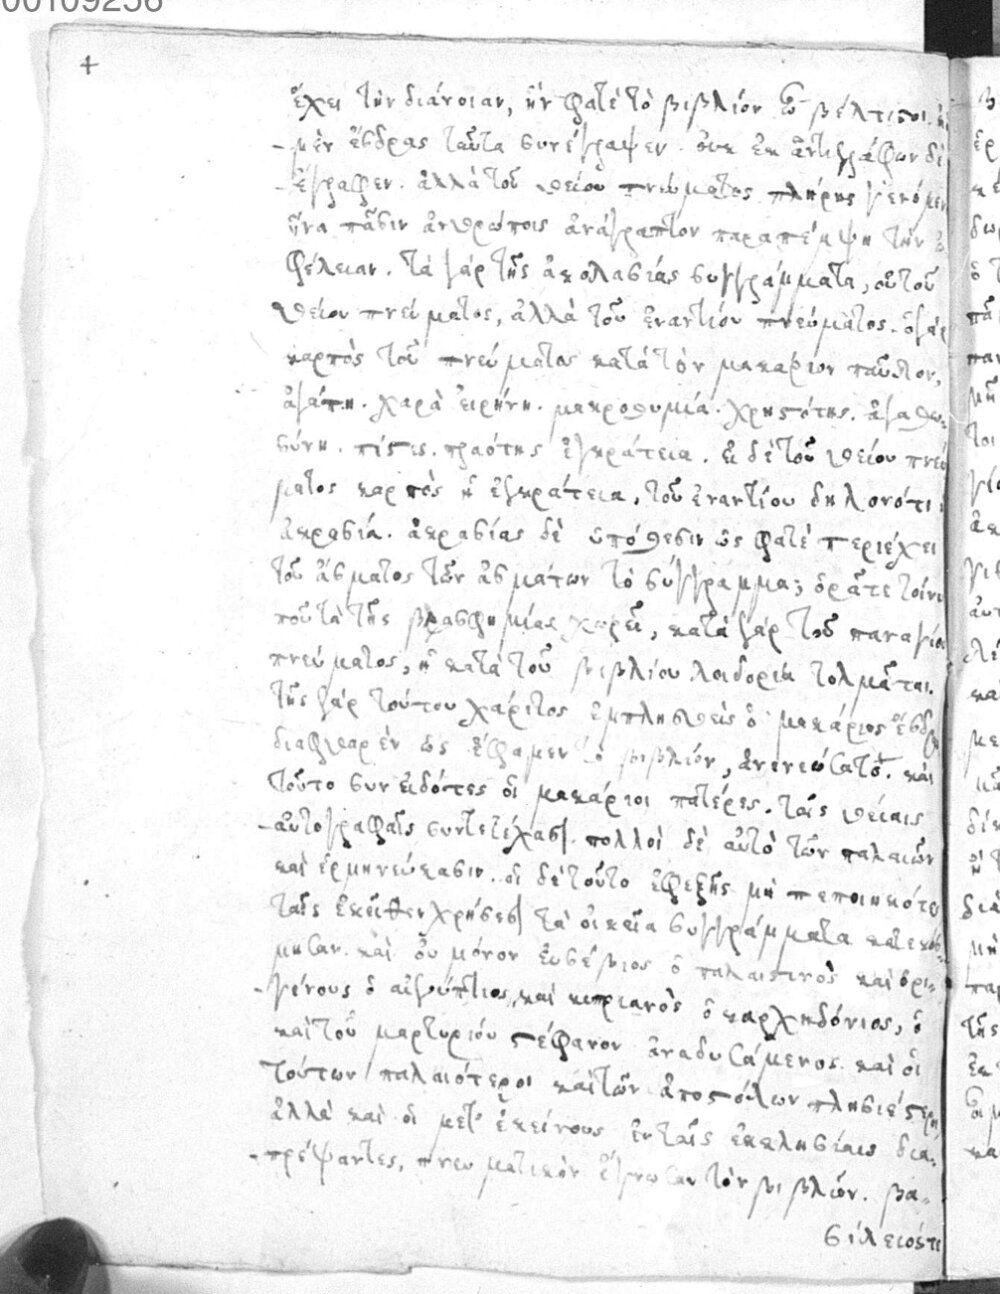 00109256
4
ἔχει τὴν διάνοιαν, ἣν φατὲ τὸ βιβλίον ὦ βέλτιστοι.
μὲν ἔσδρας ταῦτα συνέγραψεν. οὐκ ἐκ ἀντιγράφων δὲ
ἔγραφεν. ἀλλὰ τοῦ θείου πνεύματος πλήρης γενόμεν
ἵνα πᾶσιν ἀνθρώποις ἀνάγραπτον παραπέμψη τὴν ὠ
φέλειαν. τὰ γὰρ τῆς ἀκολασίας συγγράμματα, οὐ τοῦ
θείου πνεύματος, ἀλλὰ τοῦ ἐναντίου πνεύματος. ὁ γὰρ
καρπὸς τοῦ πνεύματος κατὰ τὸν μακάριον παῦλον,
ἀγάπη. χαρὰ εἰρήνη. μακροθυμία. χρηστότης. ἀγαθω-
σύνη. πίστις. πραότης ἐγκράτεια. εἰ δὲ τοῦ θείου πνεύ
ματος καρπὸς ἡ ἐγκράτεια, τοῦ ἐναντίου δηλονότι
ἀκρασία. ἀκρασίας δὲ ὑπόθεσιν ὡς φατὲ περιέχει
τοῦ ἄσματος τῶν ἀσμάτων τὸ σύγγραμμα; ὁρᾶτε τοίνυ
ποῦ τὰ τῆς βλασφημίας χωρεῖ, κατὰ γὰρ τοῦ παναγίου
πνεύματος, ἡ κατὰ τοῦ βιβλίου λοιδορία τολμᾶται.
τῆς γὰρ τούτου χάριτος ἐμπλησθεὶς ὁ μακάριος ἔσδρας
διαφθαρὲν ὡς ἔφαμεν τὸ βιβλίον, ἀνενεώσατο. καὶ
τοῦτο συνειδότες οἱ μακάριοι πατέρες. ταῖς θείαις
αὐτὸ γραφαῖς συντετάχασι. πολλοὶ δὲ αὐτὸ τῶν παλαιῶν
καὶ ἑρμηνεύκασιν. οἱ δὲ τοῦτο ἐφεξῆς μὴ πεποιηκότες
ταῖς ἐκεῖθεν χρήσεσι τὰ οἰκεῖα συγγράμματα κατεκόσ-
μησαν. καὶ οὐ μόνον εὐσέβιος ὁ παλαιστινὸς καὶ ὀρι-
γένους ὁ αἰγύπτιος, καὶ κυπριανὸς ὁ καρχηδόνιος, ὁ
καὶ τοῦ μαρτυρίου στέφανον ἀναδυσάμενος. καὶ οἱ
τούτων παλαιότεροι καὶ τῶν ἀποστόλων πλησιέστεροι,
ἀλλὰ καὶ οἱ μετ' ἐκείνους ἐν ταῖς ἐκκλησίαις δια-
πρέψαντες, πνευματικὸν ἔγνωσαν τὸν βιβλίον. βα-
σίλειός τε